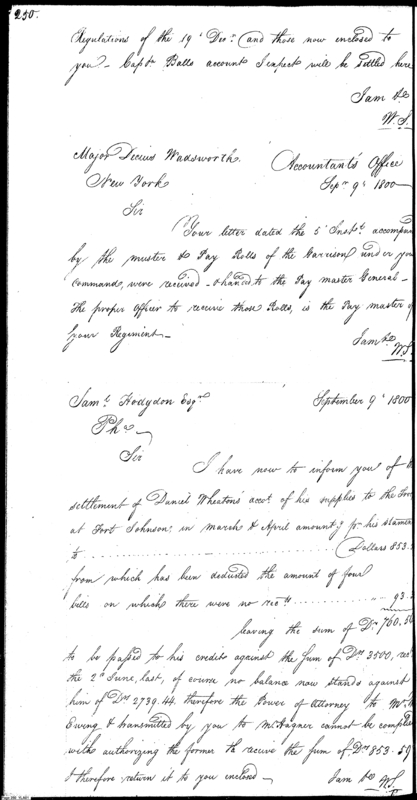 250.
Regulations of the 19th Decr. (and those now enclosed to
you - Capt. Balls account I expect will be settled here
I am &c
W.S.
Major Decius Wadsworth. Accountant's Office
New York Sepr. 9th 1800
Sir
Your letter dated the 5th Inst. accompan
by the muster & Pay Rolls of the Garrison under you
command, were received - & handed to the Pay master General -
The proper Officer to receive those Rolls, is the Pay master of
your Regiment -
I am &c
W.S.
Saml. Hodgdon Esqr. September 9th 1800
Pha.
Sir
I have now to inform you of
settlement of Daniel Wheaton's acct. of his supplies to the Troo
at Fort Johnson; in march & April amounty. pr. his statem
to Dollars 853.
from which has been deducted the amount of four
bills on which there were no rects. " 93.
leaving the sum of Drs. 760.56
to be passed to his credit against the sum of Drs. 3500, recd.
the 2d June, last, of course no balance now stands against
him of Drs. 2739.44. therefore the Power of Attorney to Mr.
Ewing & transmitted by you to Mr. Wagner cannot be complied
with authorizing the former to receive the sum of Drs. 853.59
& therefore return it to you enclosed - I am &c W.S.